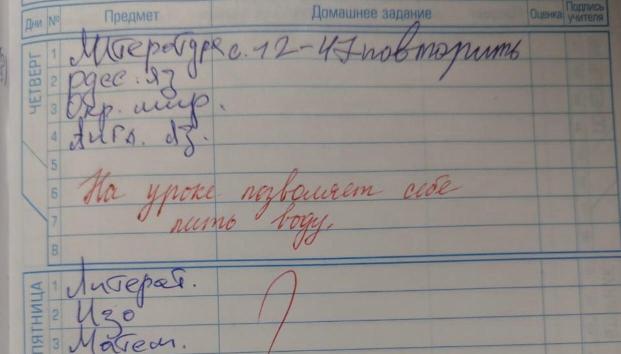 Дни № Предмет Домашнее задание Оценка Подпись учителя
ЧЕТВЕРГ
1 Литература с. 12-47 повторить
2 русс. яз
3 Окр. мир.
4 Англ. яз.
5
6 На уроке позволяет себе
7 пить воду.
8
ПЯТНИЦА
1 Литерат.
2 Изо
3 Матем.